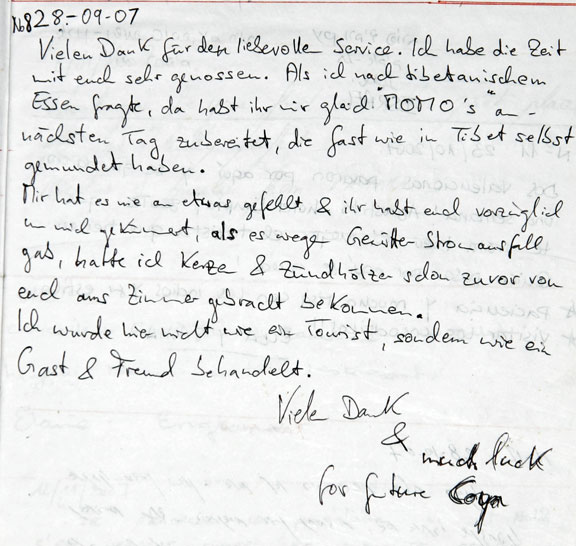 No8 28-09-07
Vielen Dank für den liebevollen Service. Ich habe die Zeit
mit euch sehr genossen. Als ich nach tibetanischem
Essen fragte, da habt ihr mir gleich "MOMO's" am
nächsten Tag zubereitet, die fast wie in Tibet selbst
gemundet haben.
Mir hat es nie an etwas gefehlt & ihr habt euch vorzüglich
um mich gekümmert, als es wegen Gewitter Stromausfall
gab, hatte ich Kerze & Zündhölzer schon zuvor von
euch ans Zimmer gebracht bekommen.
Ich wurde hie nicht wie ein Tourist, sondern wie ein
Gast & Freund behandelt.
Viele Dank
&
much luck
for future